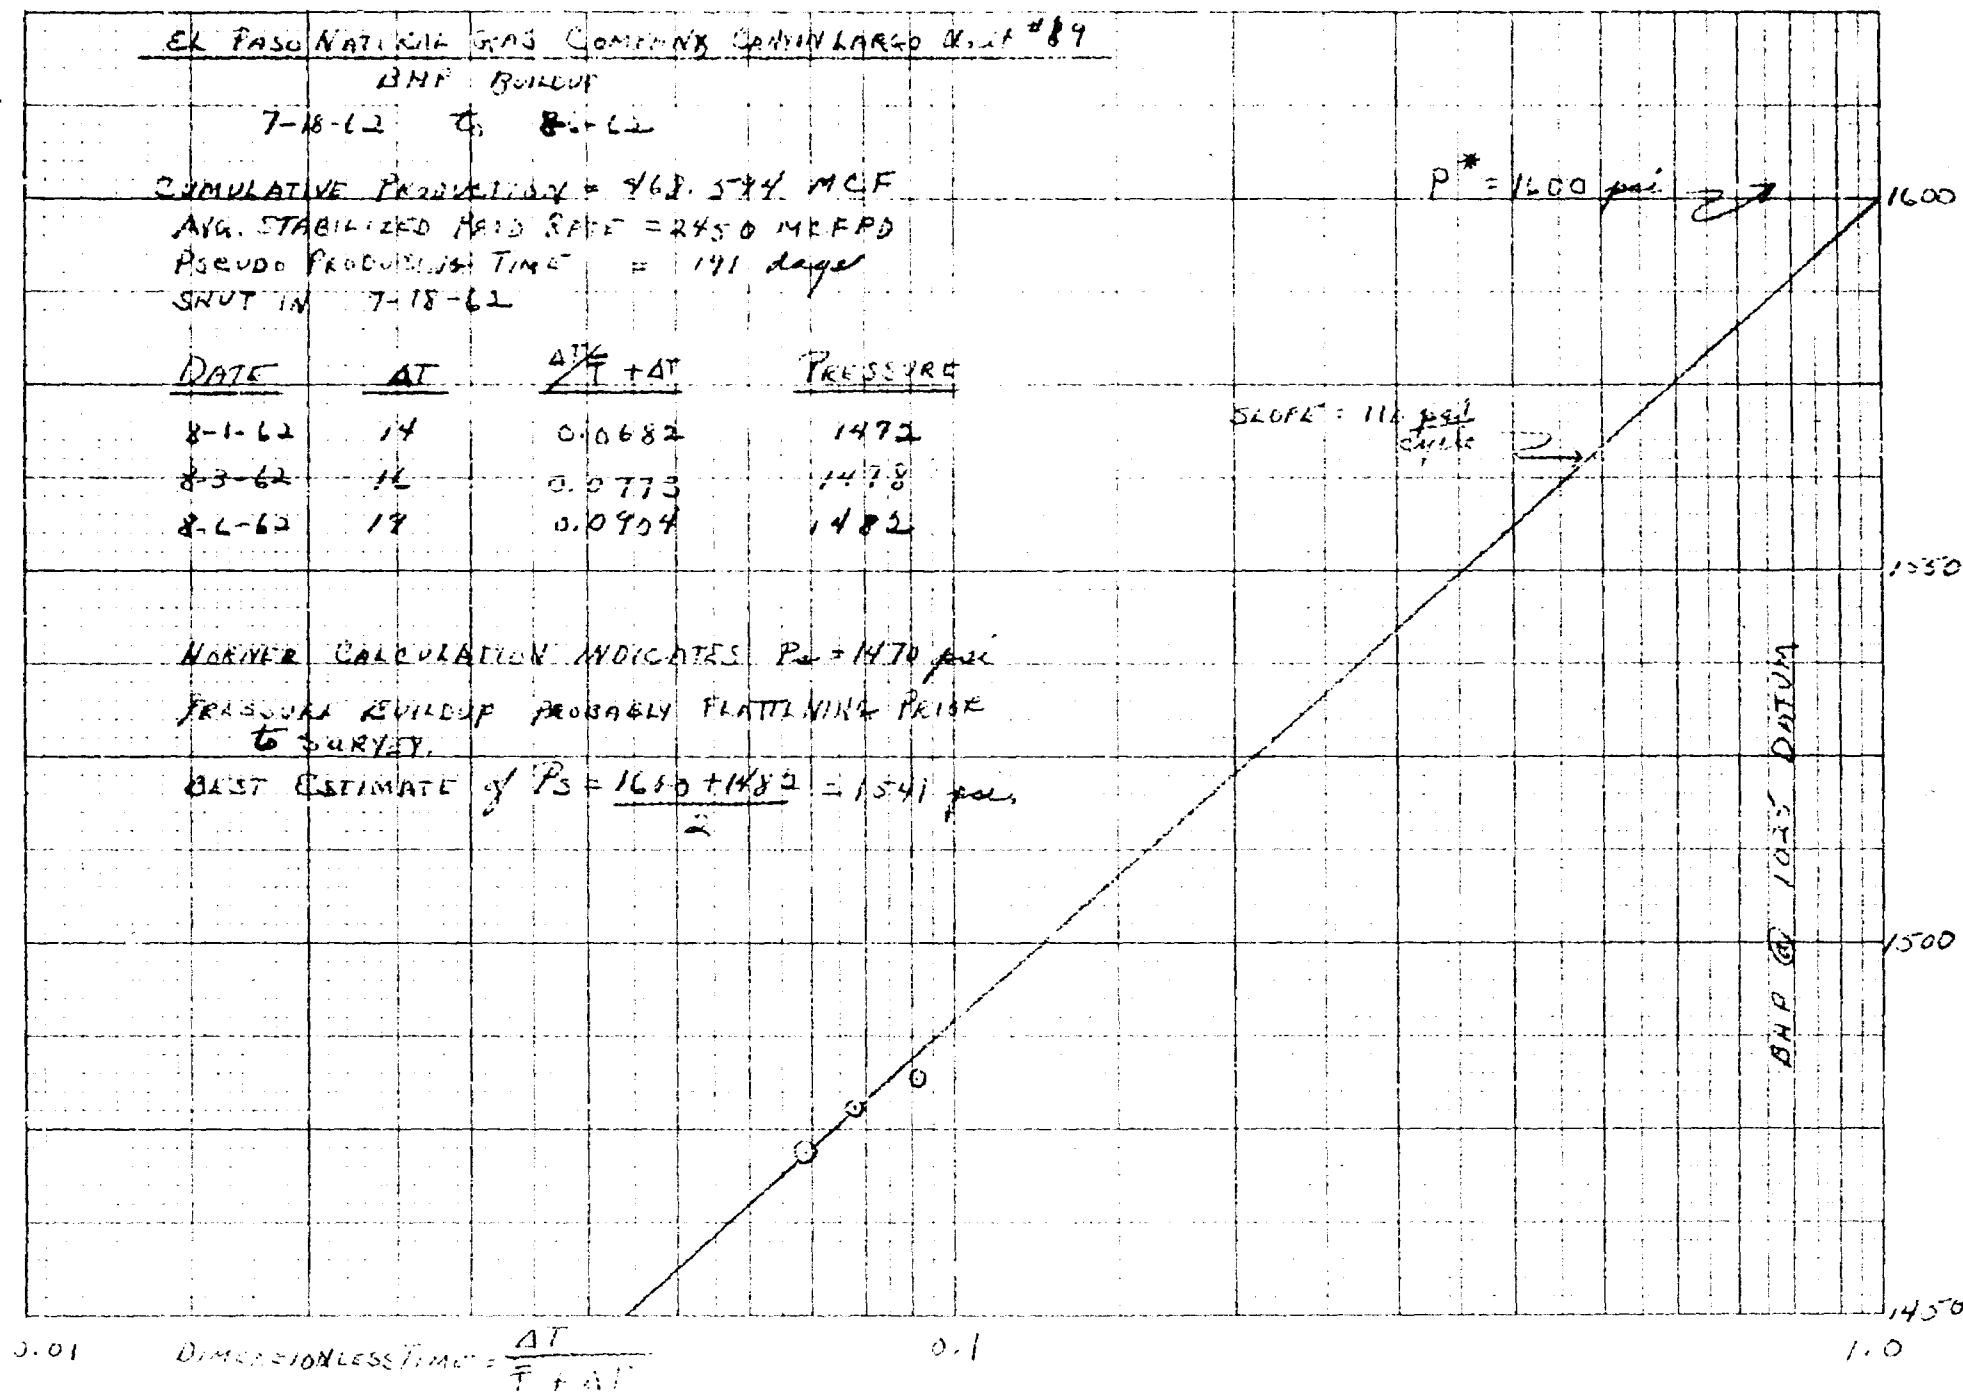 EL PASO NATURAL GAS COMPANY CANYON LARGO Unit #89
BHP BUILDUP
7-18-62 to 8-6-62
CUMULATIVE PRODUCTION = 468.594 MCF
AVG. STABILIZED PROD RATE = 2450 MCFPD
PSEUDO PRODUCING TIME = 191 days
SHUT IN 7-18-62
DATE ΔT ΔT/T̄ + ΔT PRESSURE
8-1-62 14 0.0682 1472
8-3-62 16 0.0773 1478
8-6-62 19 0.0904 1482
HORNER CALCULATION INDICATES Ps = 1470 psi
PRESSURE BUILDUP PROBABLY FLATTENING PRIOR
to SURVEY.
BEST ESTIMATE of Ps = 1600 + 1482 = 1541 psi
2
P* = 1600 psi
1600
SLOPE = 111 psi
cycle
1550
BHP @ 1025 DATUM
1500
1450
0.01 0.1 1.0
DIMENSIONLESS TIME = ΔT
T̄ + ΔT